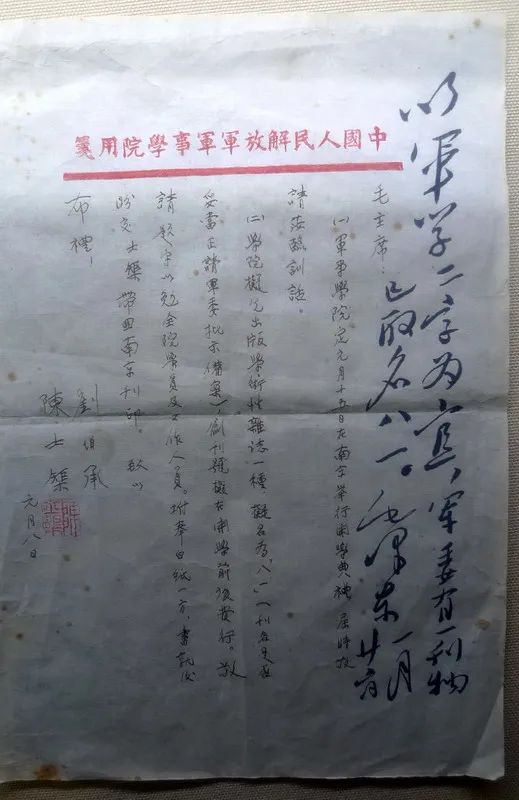 中國人民解放軍軍事學院用箋
以軍学二字为宜，軍委有一刊物
已取名八一。毛澤东 一月
毛主席：
㈠軍事學院定元月十五日在南京举行開學典禮，屆时敬
請莅臨訓話。
㈡學院擬先出版學術性雜誌一種，擬名为“八一”（刊名是否
妥當正請軍委批示備案），創刊號擬在開學前後發行。敬
請題字以勉全院學員及工作人員。附奉白紙一方，書就後
盼交士榘帶回南京刊印。致以
布禮，
劉伯承
陳士榘
元月八日